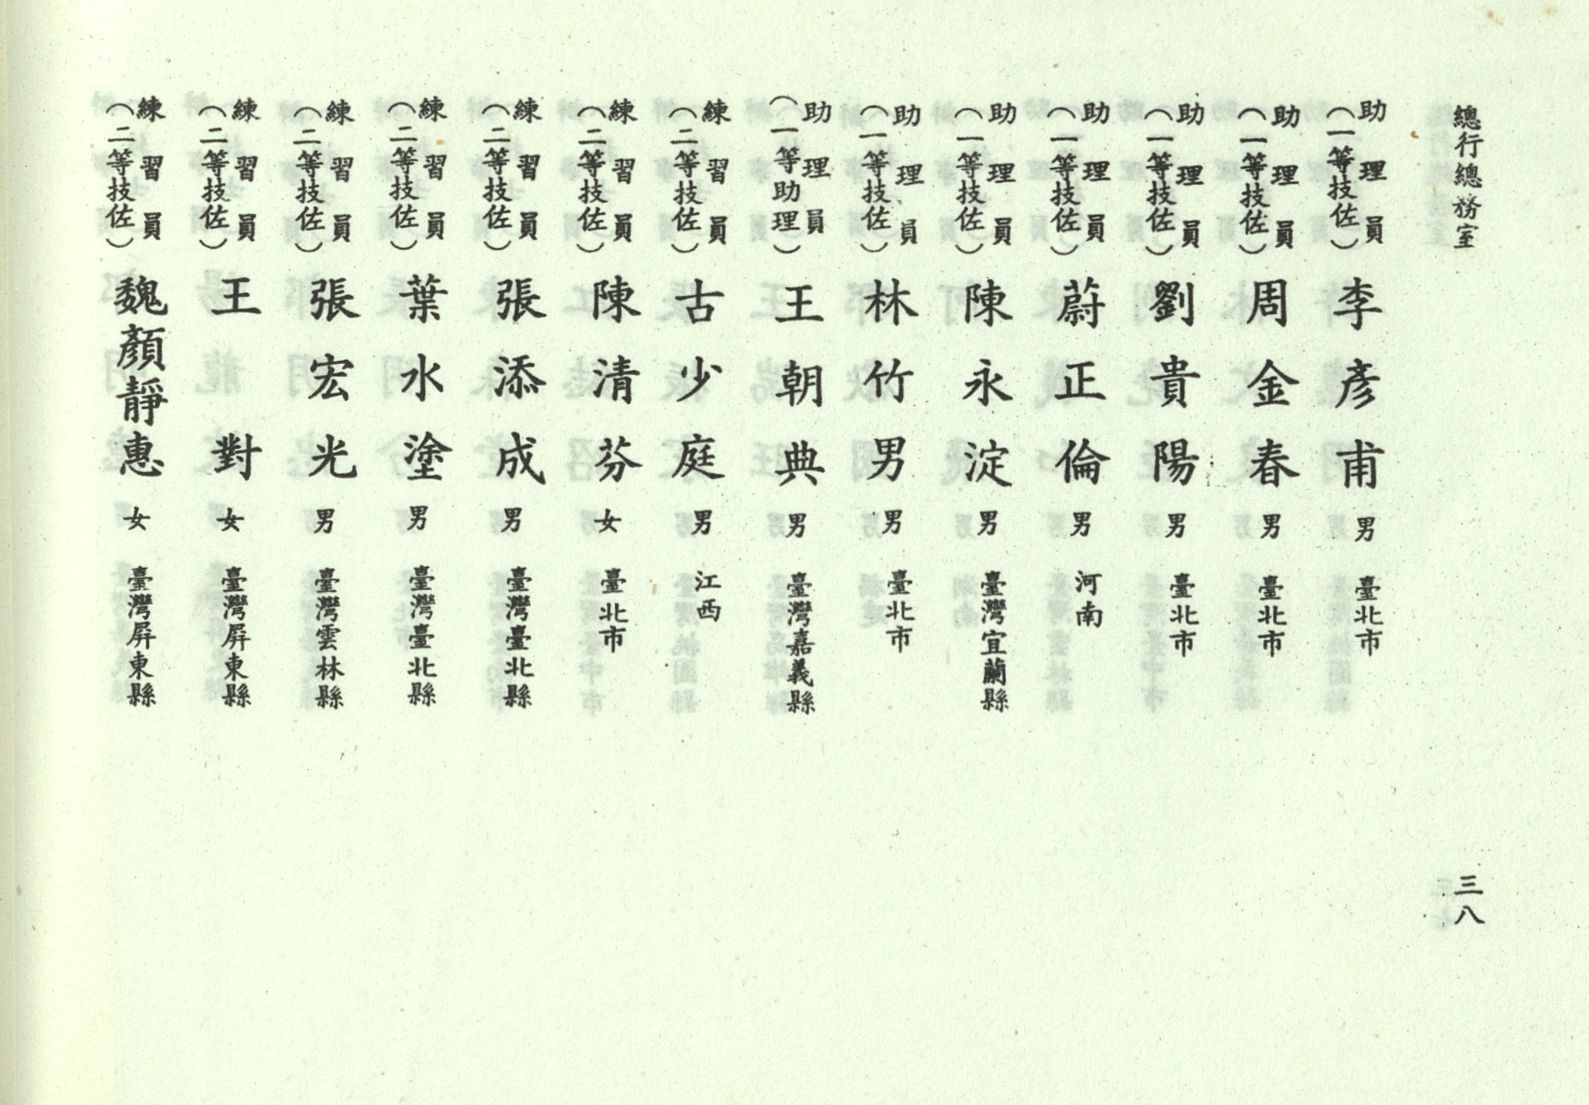 總行總務室
三八
助理員（一等技佐）李彥甫 男 臺北市
助理員（一等技佐）周金春 男 臺北市
助理員（一等技佐）劉貴陽 男 臺北市
助理員（一等技佐）蔚正倫 男 河南
助理員（一等技佐）陳永淀 男 臺灣宜蘭縣
助理員（一等技佐）林竹男 男 臺北市
助理員（一等助理）王朝典 男 臺灣嘉義縣
練習員（二等技佐）古少庭 男 江西
練習員（二等技佐）陳清芬 女 臺北市
練習員（二等技佐）張添成 男 臺灣臺北縣
練習員（二等技佐）葉水塗 男 臺灣臺北縣
練習員（二等技佐）張宏光 男 臺灣雲林縣
練習員（二等技佐）王對 女 臺灣屏東縣
練習員（二等技佐）魏顏靜惠 女 臺灣屏東縣